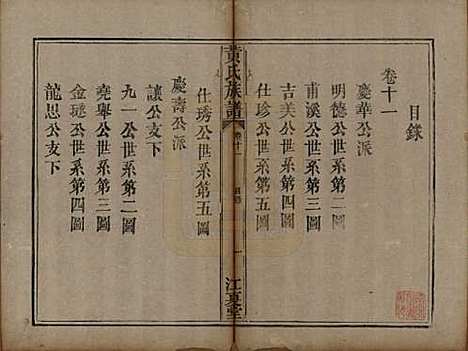 目錄
卷十一
慶華公派
明德公世系第二圖
甫溪公世系第三圖
吉美公世系第四圖
仕珍公世系第五圖
黃氏族譜
卷十一
目錄
一
江夏堂
仕琇公世系第五圖
慶壽公派
讓公支下
九一公世系第二圖
堯舉公世系第三圖
金琎公世系第四圖
龍思公支下